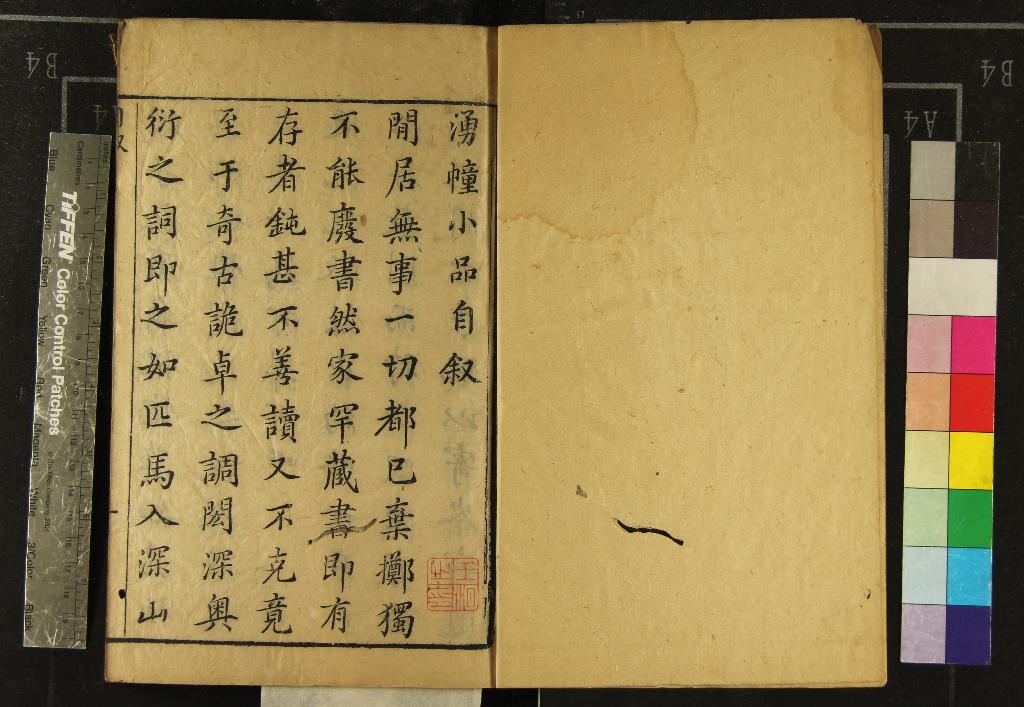 湧幢小品自叙
閒居無事一切都已棄擲獨
不能廢書然家罕藏書即有
存者鈍甚不善讀又不克竟
至于奇古詭卓之調閎深奧
衍之詞即之如匹馬入深山
TIFFEN Color Control Patches
Blue
Cyan
Green
Yellow
Red
Magenta
White
3/Color
Black
Centimetres
B4
B4
A4